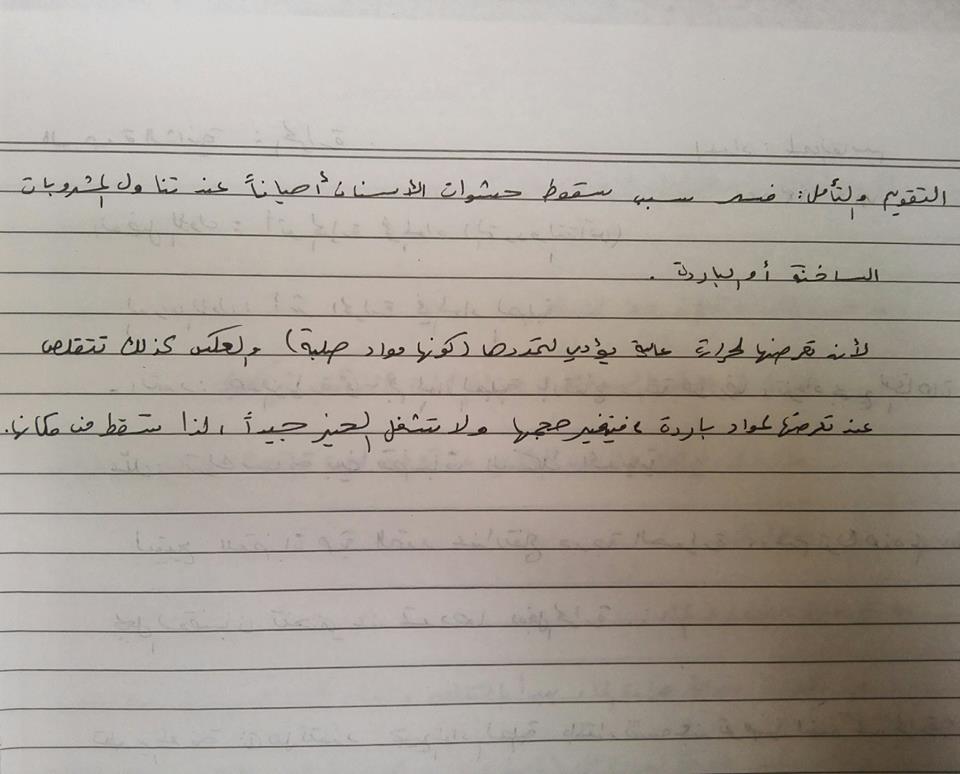 التقويم والتأمل: فسر سبب سقوط حشوات الأسنان أحياناً عند تناول المشروبات
الساخنة أو الباردة .
لأن تعرضها لحرارة عالية يؤدي لتمددها (كونها مواد صلبة) والعكس كذلك تتقلص
عند تعرضها لمواد باردة ، فيتغير حجمها ولا تشغل الحيز جيداً ، لذا تسقط من مكانها.